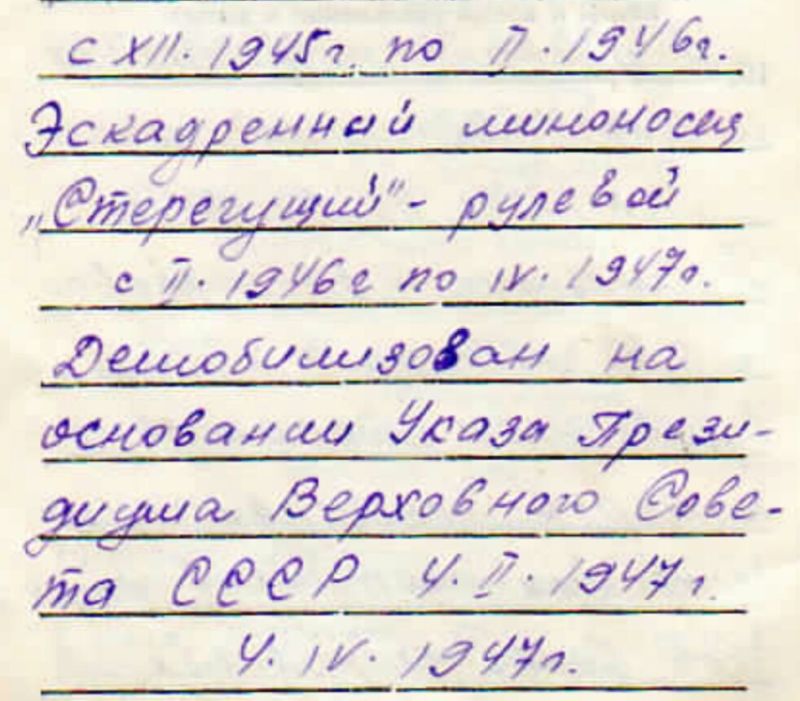 с XII. 1945г. по II. 1946г.
Эскадренный миноносец
„Стерегущий" - рулевой
с II. 1946г по IV. 1947г.
Демобилизован на
основании Указа Прези-
диума Верховного Сове-
та СССР 4. II. 1947г.
4. IV. 1947г.